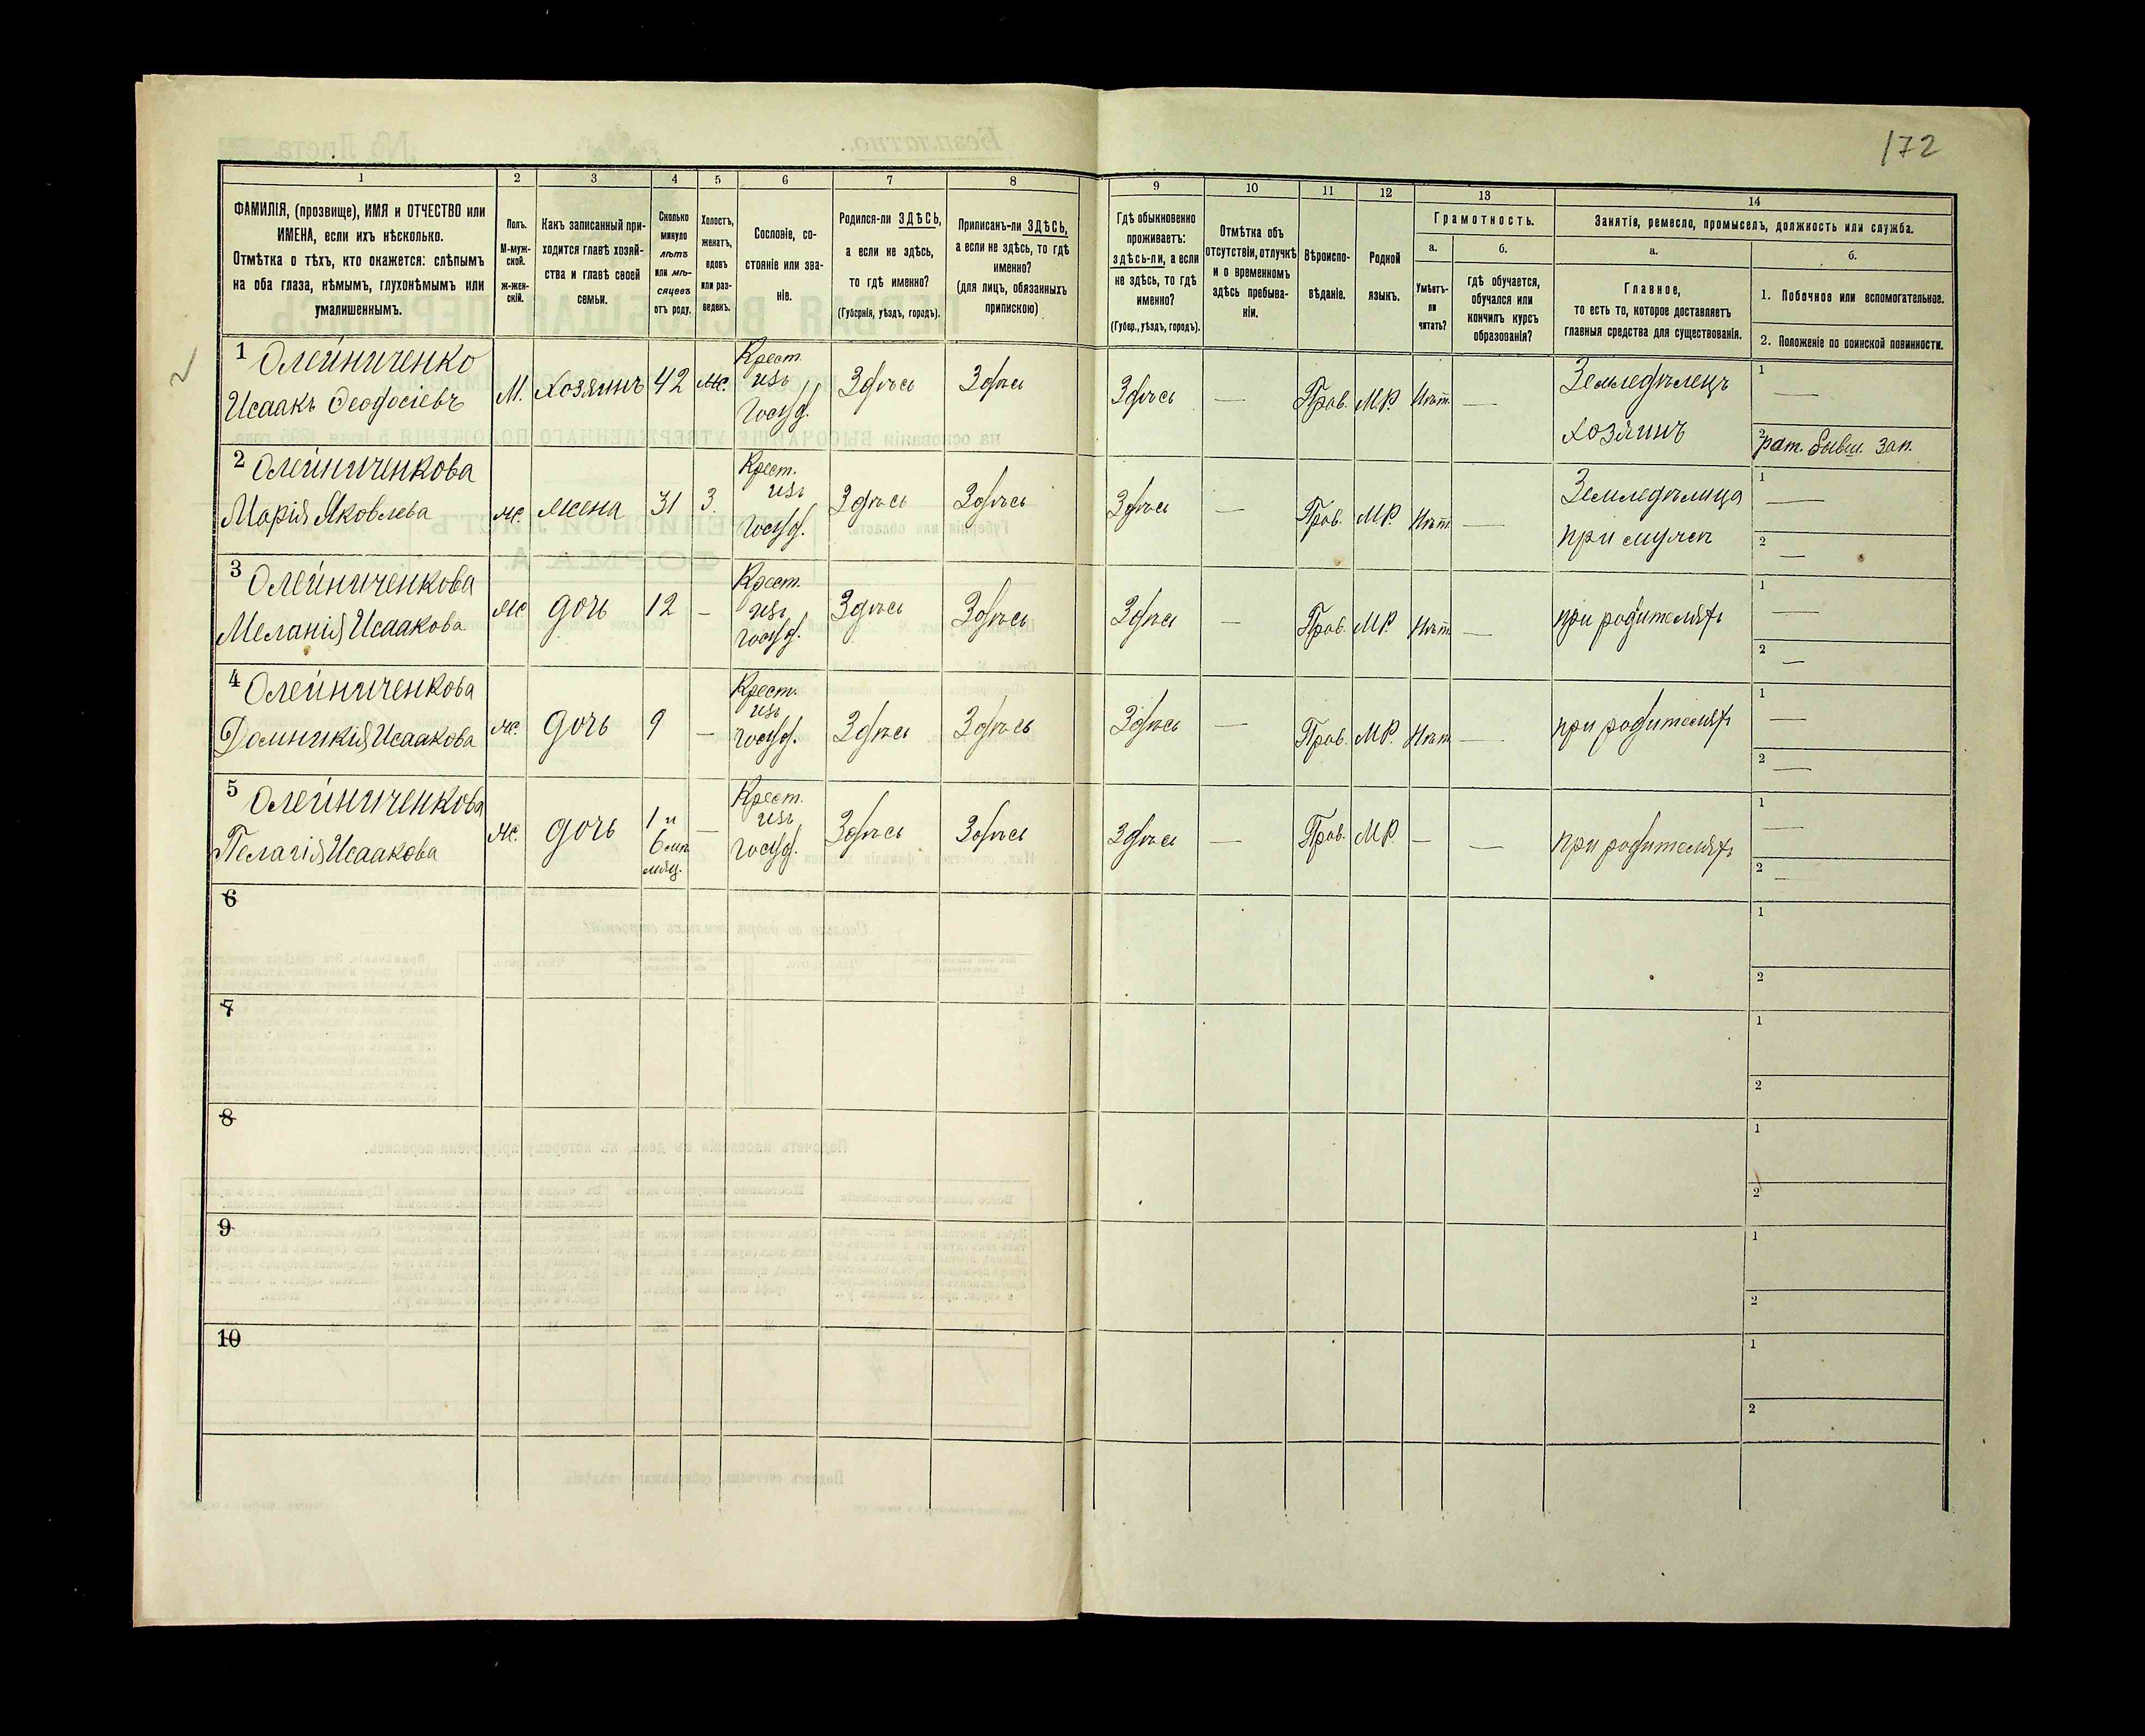 172
1 2 3 4 5 6 7 8 9 10 11 12 13 14
ФАМИЛІЯ, (прозвище), ИМЯ и ОТЧЕСТВО или
ИМЕНА, если ихъ нѣсколько.
Отмѣтка о тѣхъ, кто окажется: слѣпымъ
на оба глаза, нѣмымъ, глухонѣмымъ или
умалишеннымъ.
Полъ.
М-муж-
ской.
ж-жен-
скій.
Какъ записанный при-
ходится главѣ хозяй-
ства и главѣ своей
семьи.
Сколько
минуло
лѣтъ
или мѣ-
сяцевъ
отъ роду.
Холостъ,
женатъ,
вдовъ
или раз-
веденъ.
Сословіе, со-
стояніе или зва-
ніе.
Родился-ли ЗДѢСЬ,
а если не здѣсь,
то гдѣ именно?
(Губернія, уѣздъ, городъ).
Приписанъ-ли ЗДѢСЬ,
а если не здѣсь, то гдѣ
именно?
(для лицъ, обязанныхъ
припискою)
Гдѣ обыкновенно
проживаетъ:
здѣсь-ли, а если
не здѣсь, то гдѣ
именно?
(Губер., уѣздъ, городъ).
Отмѣтка объ
отсутствіи, отлучкѣ
и о временномъ
здѣсь пребыва-
ніи.
Вѣроиспо-
вѣданіе.
Родной
языкъ.
Грамотность.
а.
Умѣетъ-
ли
читать?
б.
гдѣ обучается,
обучался или
кончилъ курсъ
образованія?
Занятіе, ремесло, промыселъ, должность или служба.
а.
Главное,
то есть то, которое доставляетъ
главныя средства для существованія.
б.
1. Побочное или вспомогательное.
2. Положеніе по воинской повинности.
1 Олейниченко
Исаакъ Феодосіевъ
М. Хозяинъ 42 Ж. Крест.
изъ
Госуд.
Здѣсь Здѣсь Здѣсь — Прав. М.Р. Нѣт. —
Земледѣлецъ
хозяинъ
1 —
2 рат. бывш. Зап.
2 Олейниченкова
Марія Яковлева
Ж. жена 31 З. Крест.
изъ
Госуд.
Здѣсь Здѣсь Здѣсь — Прав. М.Р. Нѣт —
Земледѣлица
при мужѣ
1 —
2 —
3 Олейниченкова
Меланія Исаакова
Ж дочь 12 — Крест.
изъ
Госуд.
Здѣсь Здѣсь Здѣсь — Прав. М.Р. Нѣт. —
при родителяхъ
1 —
2 —
4 Олейниченкова
Домникія Исаакова
Ж. дочь 9 — Крест.
изъ
Госуд.
Здѣсь Здѣсь Здѣсь — Прав. М.Р. Нѣт —
при родителяхъ
1 —
2 —
5 Олейниченкова
Пелагія Исаакова
Ж. дочь 1 и
6
мѣц.
— Крест.
изъ
Госуд.
Здѣсь Здѣсь Здѣсь — Прав. М.Р. — —
при родителяхъ
1 —
2 —
6
1
2
7
1
2
8
1
2
9
1
2
10
1
2